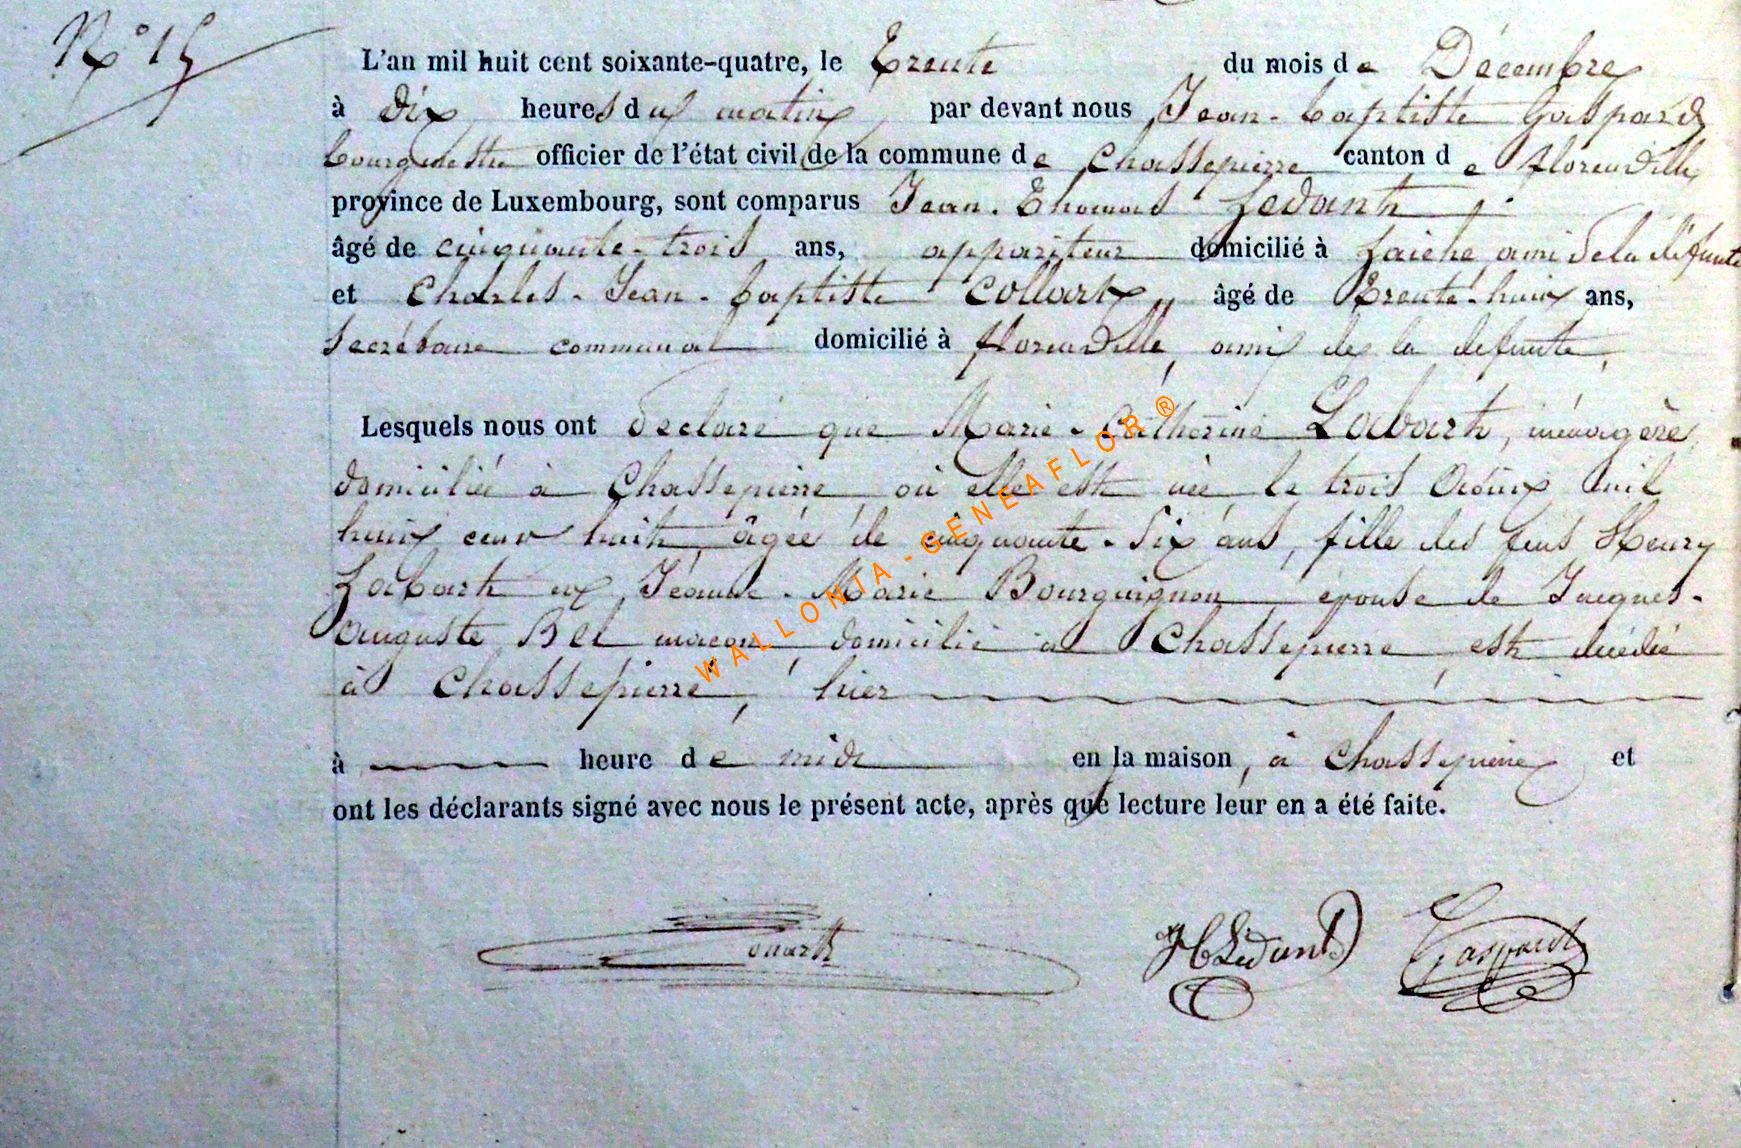 N° 15
L'an mil huit cent soixante-quatre, le Trente du mois de Décembre
à dix heures du matin par devant nous Jean-baptiste Gaspard
bourgmestre officier de l'état civil de la commune de Chassepierre canton de florenville
province de Luxembourg, sont comparus Jean-Thomas Ledant
âgé de cinquante-trois ans, appariteur domicilié à Laiche, ami de la défunte
et Charles-Jean-baptiste Collart, âgé de Trente-huit ans,
Secrétaire communal domicilié à florenville, ami de la defunte,
Lesquels nous ont declaré que Marie-Catherine Labart, ménagère,
domiciliée à Chassepierre où elle est née le trois Août mil
huit cent huit, âgée de cinquante-six ans, fille des feus Henry
Labart et Jeanne-Marie Bourguignon, épouse de Jacques-
auguste Bel maçon, domicilié à Chassepierre, est décédée
à Chassepierre, hier
à heure de midi en la maison, à Chassepierre et
ont les déclarants signé avec nous le présent acte, après que lecture leur en a été faite.
JCLedant Gaspard
WALLONIA-GENEAFLOR ®